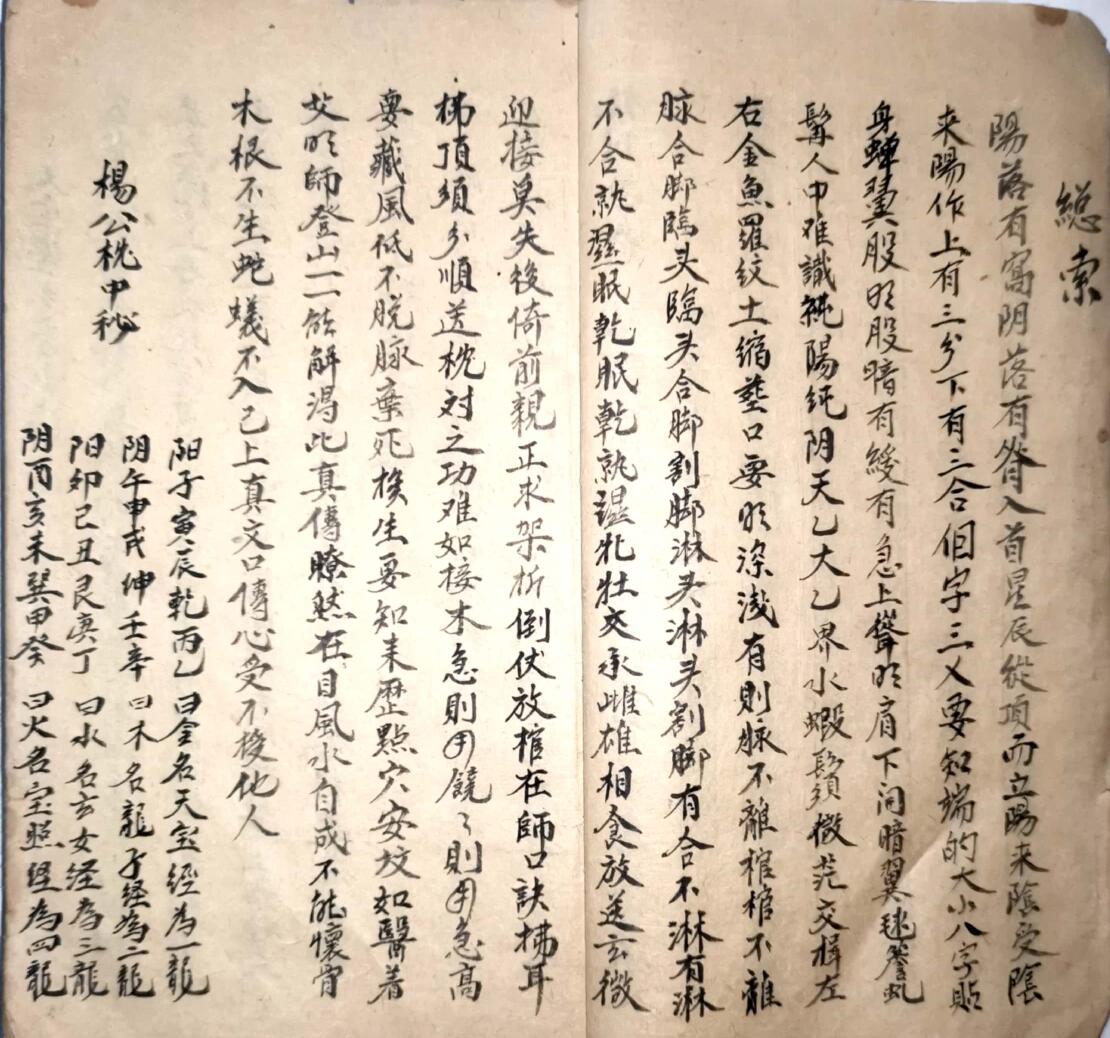 總索
陽落有窩阴落有脊入首星辰從項而立陽来陰受陰
来陽作上有三分下有三合個字三乂要知端的大小八字貼
身蟬翼股明股暗有緩有急上聳明肩下闭暗翼毬簷虬
髯人中难識純陽纯阴天乙太乙界水蝦鬚微茫交揖左
右金魚羅紋土缩塟口要明深浅有則脉不離棺棺不離
脉合脚臨头臨头合脚割脚淋头淋头割脚有合不淋有淋
不合就濕眠乾眠乾就濕牝牡交承雌雄相食放送玄微
迎接莫失後倚前親正求架折倒仗放棺在師口訣拂耳
拂頂須分順送枕対之功难如接木急則用饒〻則用急高
要藏風低不脱脉棄死挨生要知来歷點穴安坟如醫着
艾明師登山一一能解淂此真傳瞭然在目風水自成不能懷骨
木根不生蛇蟻不入已上真文口傳心受不授化人
楊公枕中秘
阳子寅辰乾丙乙曰金名天宝經為一龍
阴午申戌坤壬辛曰木名龍子経為二龍
阳卯巳丑艮庚丁 曰水名玄女経為三龍
阴酉亥未巽甲癸 曰火名宝照經為四龍